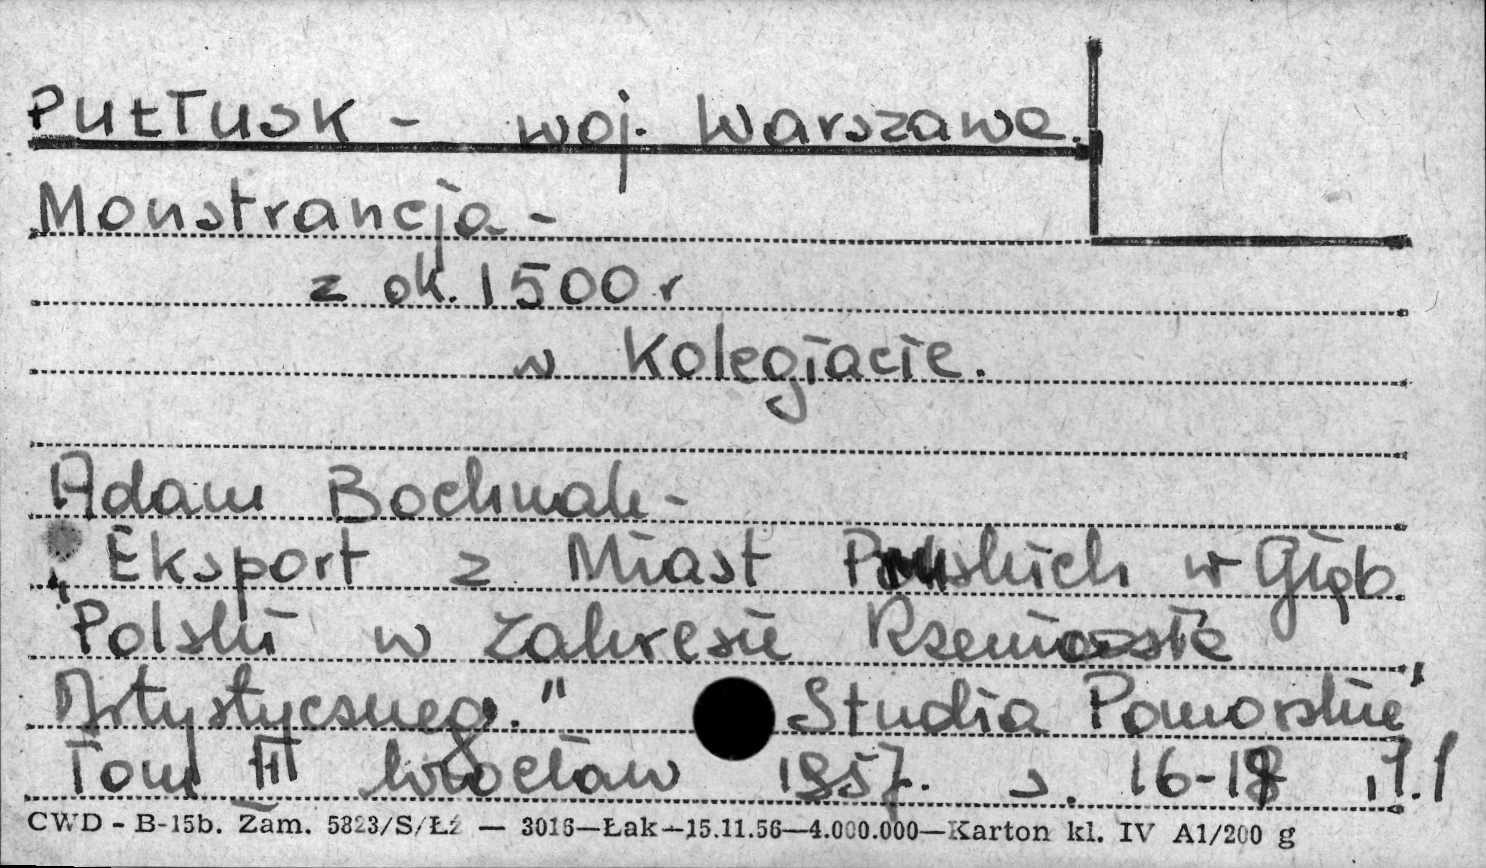 PUŁTUSK - woj. Warszawa.
Monstrancja -
z ok. 1500 r
w Kolegiacie.
Adam Bochnak -
„Eksport z Miast Pruskich w Głąb
Polski w Zakresie Rzemiosła
Artystycznego." Studia Pomorskie,
Tom III Wrocław 1957. s. 16-18
CWD - B-15b. Zam. 5823/S/Łź — 3016—Łak—15.11.56—4.000.000—Karton kl. IV A1/200 g